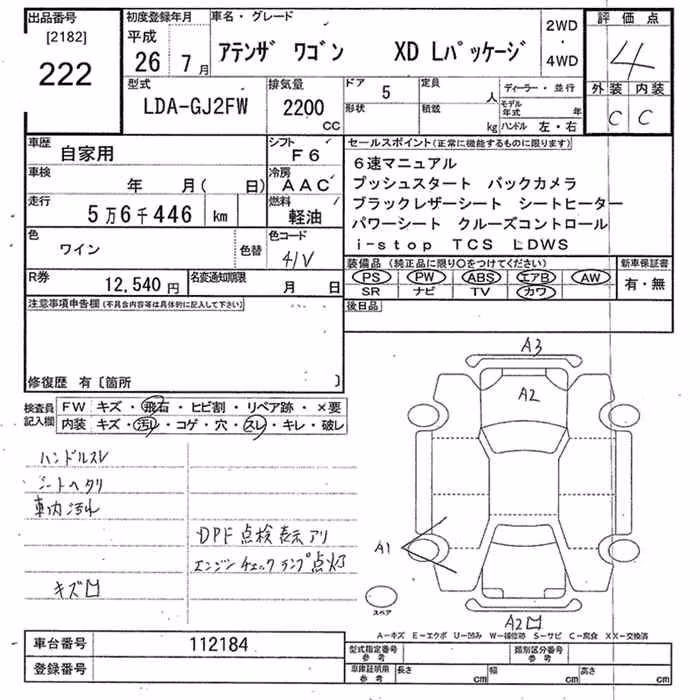 出品番号 初度登録年月 車名・グレード 2WD 評価点
[2182] 平成 ・
222 26 7月 アテンザ ワゴン XD Lパッケージ 4WD 4
型式 排気量 ドア 5 定員 人 ディーラー・並行 外装 内装
LDA-GJ2FW 2200 CC 形状 積載 kg モデル年式 年 C C
ハンドル 左・右
車歴 自家用 シフト F6 セールスポイント(正常に機能するものに限ります)
車検 年 月( 日) 冷房 AAC 6速マニュアル
走行 5万6千446 km 燃料 軽油 プッシュスタート バックカメラ
ブラックレザーシート シートヒーター
色 ワイン 色替 色コード 41V パワーシート クルーズコントロール
i-stop TCS LDWS
R券 12,540円 名変通知期限 月 日 装備品(純正品に限り○をつけてください) 新車保証書
PS PW ABS エアB AW 有・無
SR ナビ TV カワ
注意事項申告欄(不具合内容等は具体的に記入して下さい) 後日品
修復歴 有〔箇所 〕
検査員 FW キズ・飛石・ヒビ割・リペア跡・×要
記入欄 内装 キズ・汚レ・コゲ・穴・スレ・キレ・破レ
ハンドルスレ
シートヘタリ
車内汚れ
DPF点検表示アリ
エンジンチェックランプ点灯
キズ凹
A3
A2
A1
スペア
A2凹
A-キズ E-エクボ U-凹み W-補修跡 S-サビ C-腐食 XX-交換済
車台番号 112184 型式指定番号 参考 類別区分番号 参考
登録番号 車庫証明用 参考 長さ cm 幅 cm 高さ cm